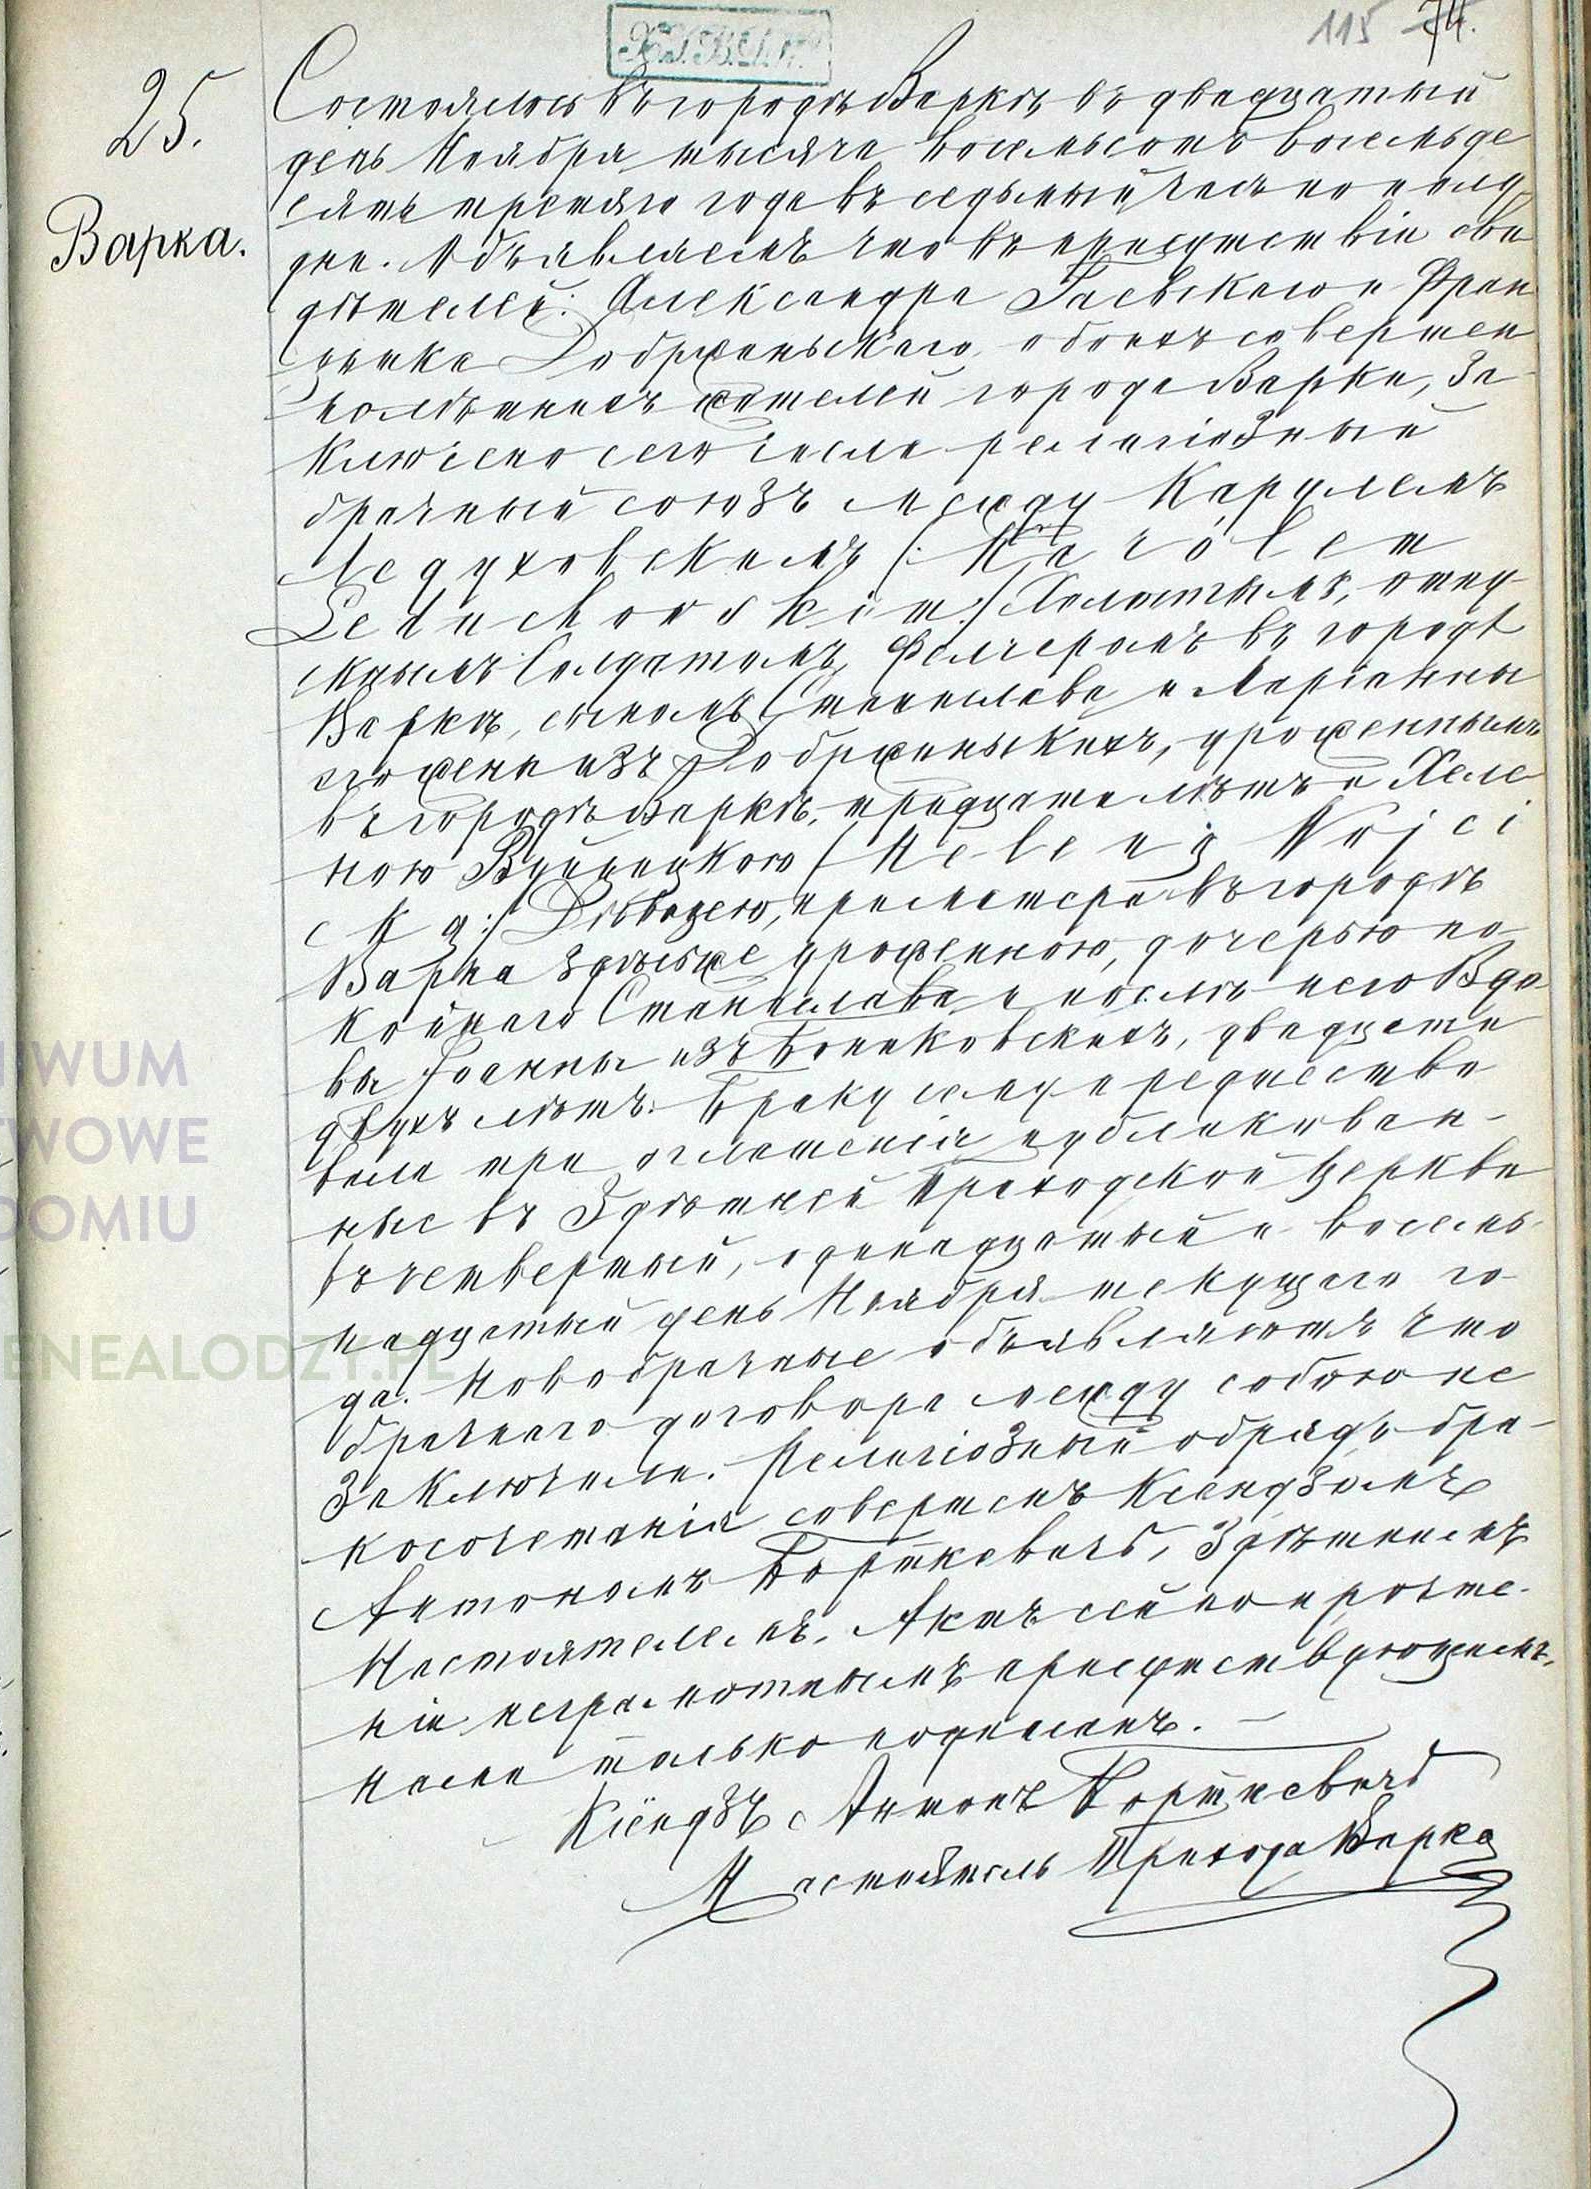 115 74.
25.
Варка.
Состоялось въ городѣ Варкѣ въ двадцатый
день Ноября тысяча восемьсотъ восемьде
сятъ третяго года въ седьмый часъ по полу
дни. Объявляемъ что въ присутствіи сви
дѣтелей: Александра Гасьскаго и Фран
цишка Добржаньскаго, обоихъ совершен
нолѣтнихъ жителей города Варки, За
ключено сего числа религіозный
брачный союзъ между Каролемъ
Ледуховскимъ (: Karólem
Leduchowskim:) Холостымъ, отпу
скнымъ Солдатомъ, Фелчеромъ въ городѣ
Варкѣ, сыномъ Станислава и Маріанны
рожденн изъ Добржаньскихъ, урожденнымъ
въ городѣ Варкѣ, тридцати лѣтъ и Хеле
ною Вуйцицкою (Heleną Wójci
cką:) Дѣвицею, при матери въ городѣ
Варка здѣсьже урожденною, дочерью по
койнаго Станислава и послѣ него Вдо
вы Іоанны изъ Бониковскихъ, двадцати
двухъ лѣтъ. Браку сему предшество
вали три оглашенія публикован-
ные въ Здѣшней Приходской Церкви
въ четвертый, одинадцатый и восемь
надцатый день Ноября текущаго го-
да. Новобрачные объявляютъ что
брачнаго договора между собою не
Заключили. Религіозный обрядъ бра-
косочетанія совершенъ Ксендзомъ
Антономъ Борткевичъ, Здѣшнимъ
Настоятелемъ. Актъ сей по прочте-
ніи неграмотнымъ присутствующимъ,
Нами только подписанъ. —
Ксендзъ Антонъ Борткевичъ
Настоятель Прихода Варка
IWUM
WOWE
DOMIU
ENEALODZY.PL